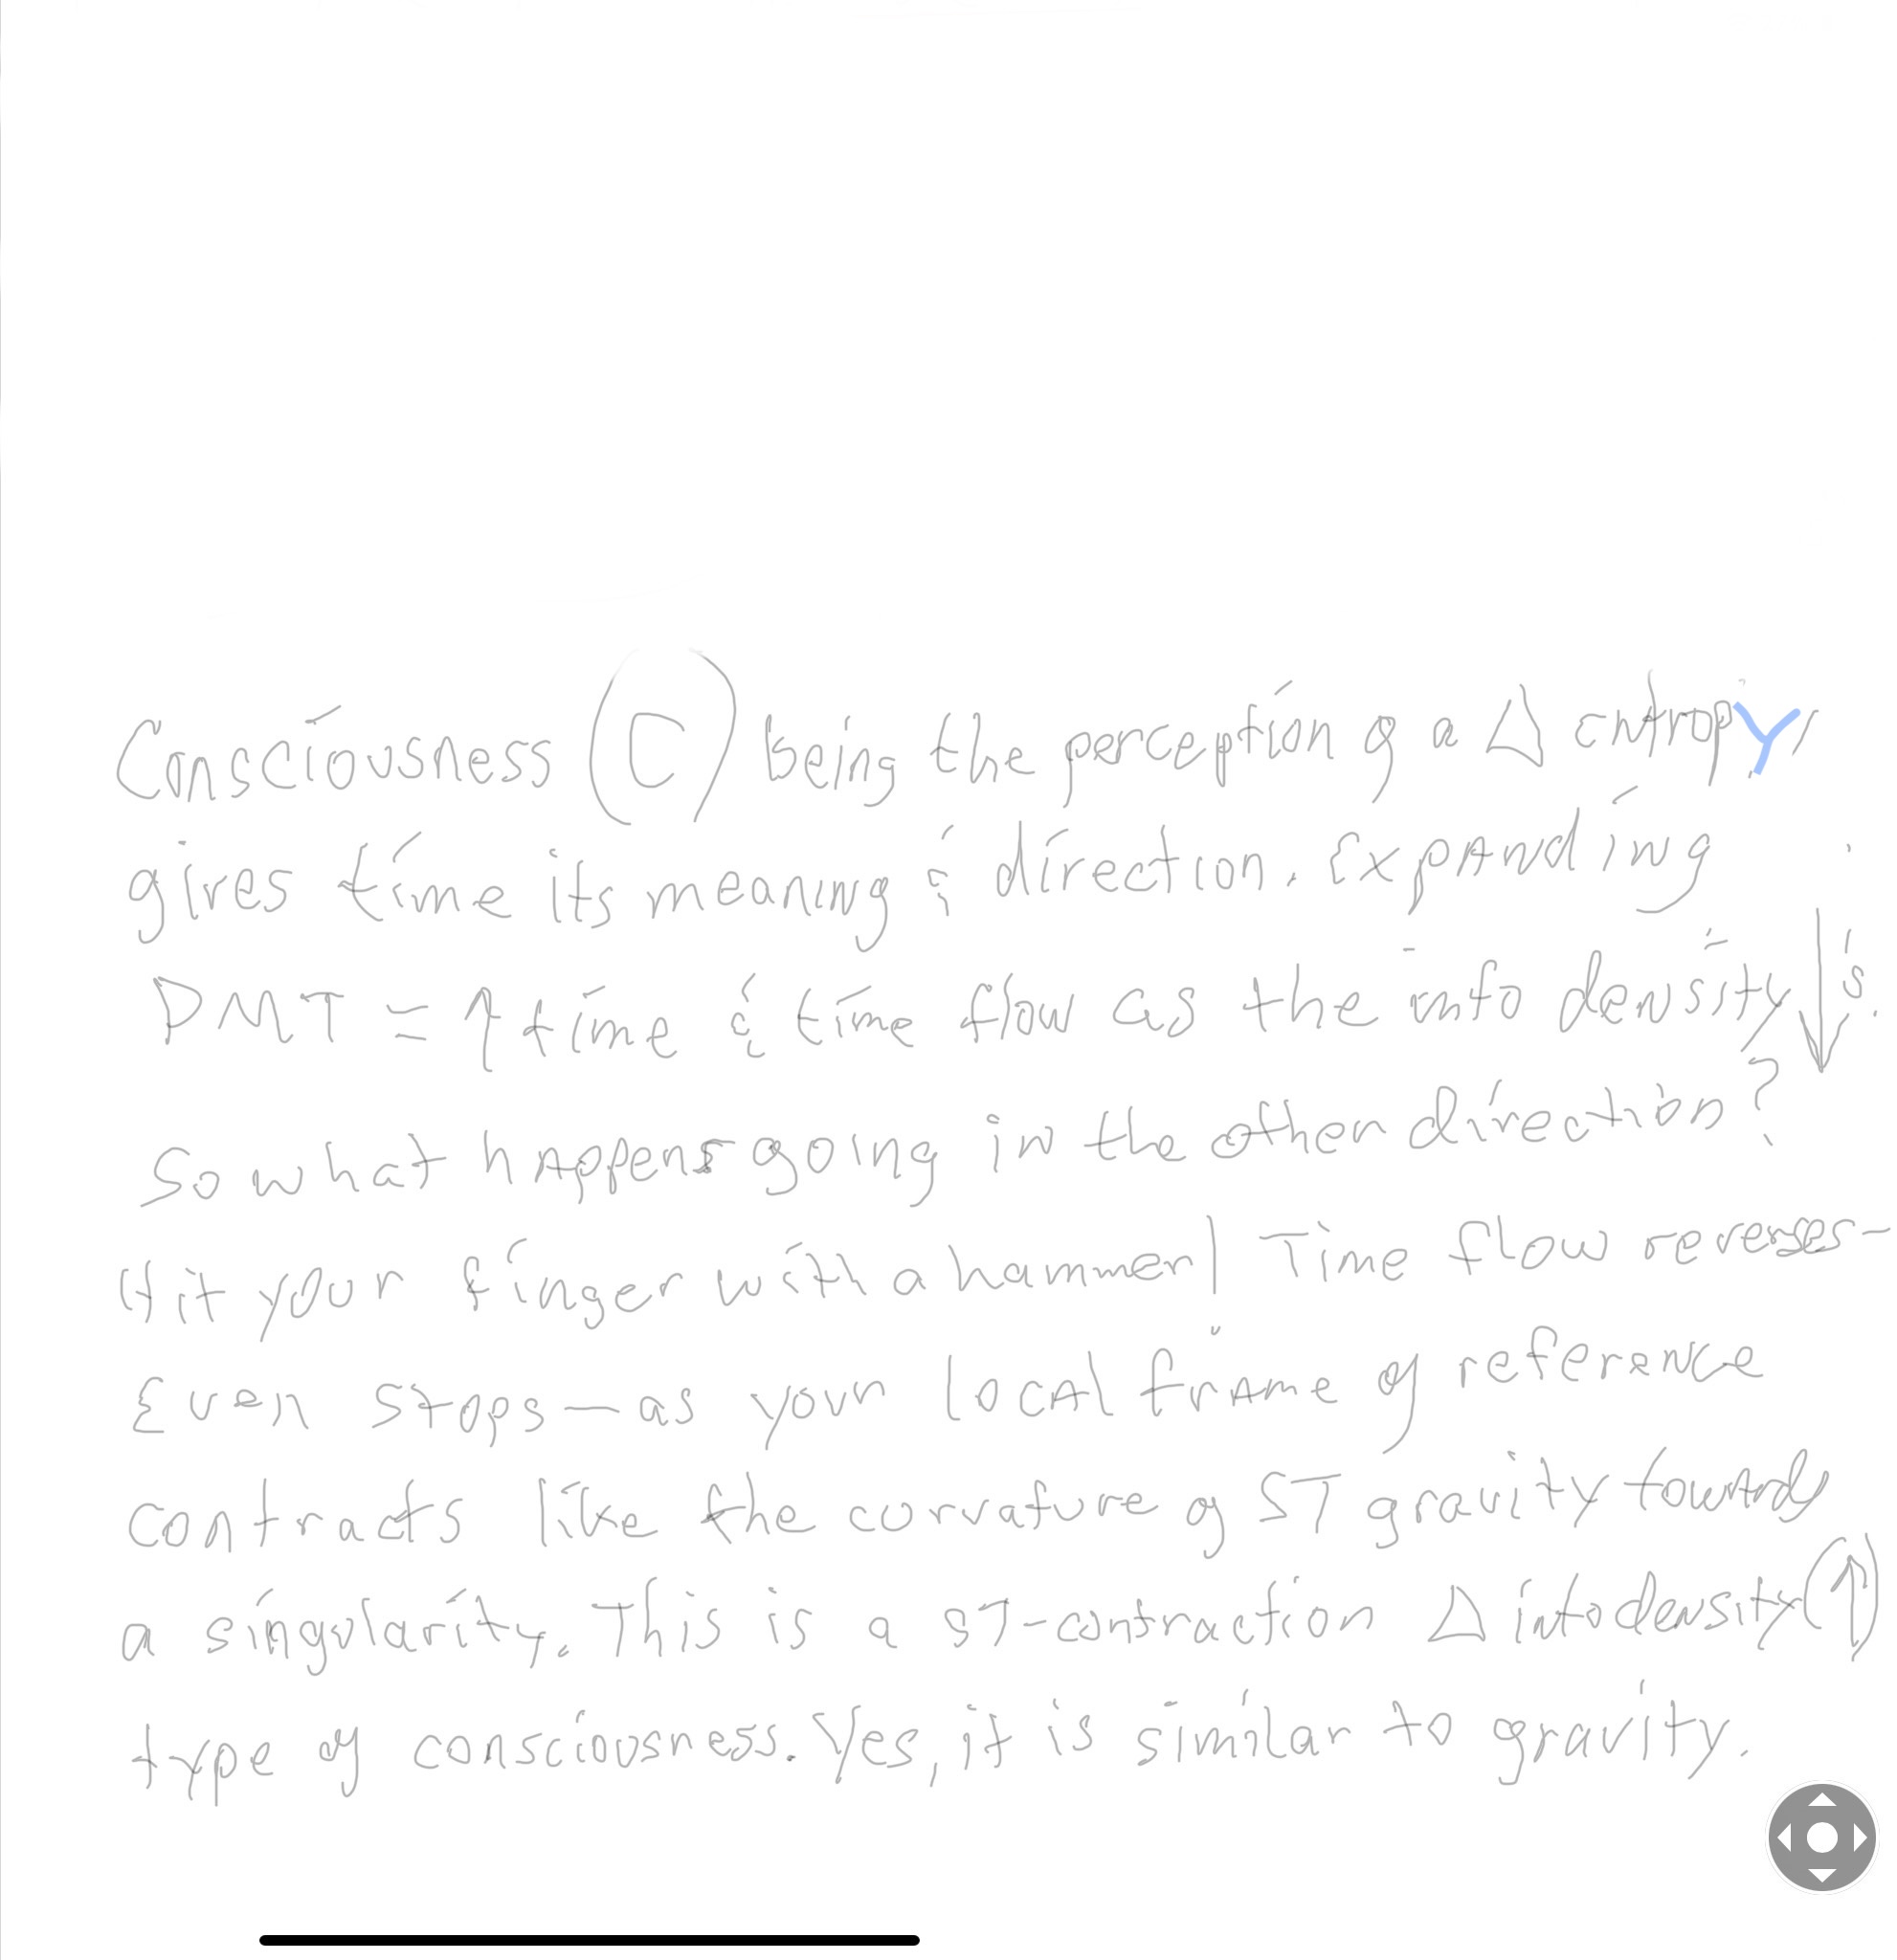 Consciousness (C) being the perception of a Δ entropy,
gives time its meaning & direction. Expanding
DMT = ↑ time & time flow as the info density ↓'s.
So what happens going in the other direction?
Hit your finger with a hammer! Time flow reverses—
Even stops — as your local frame of reference
contracts like the curvature of ST gravity toward
a singularity. This is a ST-contraction Δ info density (↑)
type of consciousness. Yes, it is similar to gravity.